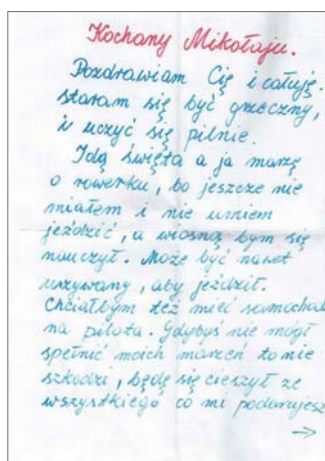 Kochany Mikołaju.
Pozdrawiam Cię i całuję.
staram się być grzeczny,
i uczyć się pilnie.
Idą święta a ja marzę
o rowerku, bo jeszcze nie
miałem i nie umiem
jeździć, a wiosną bym się
nauczył. Może być nawet
używany, aby jeździł.
Chciałbym też mieć samochód
na pilota. Gdybyś nie mógł
spełnić moich marzeń to nie
szkodzi, będę się cieszył ze
wszystkiego co mi podarujesz
→